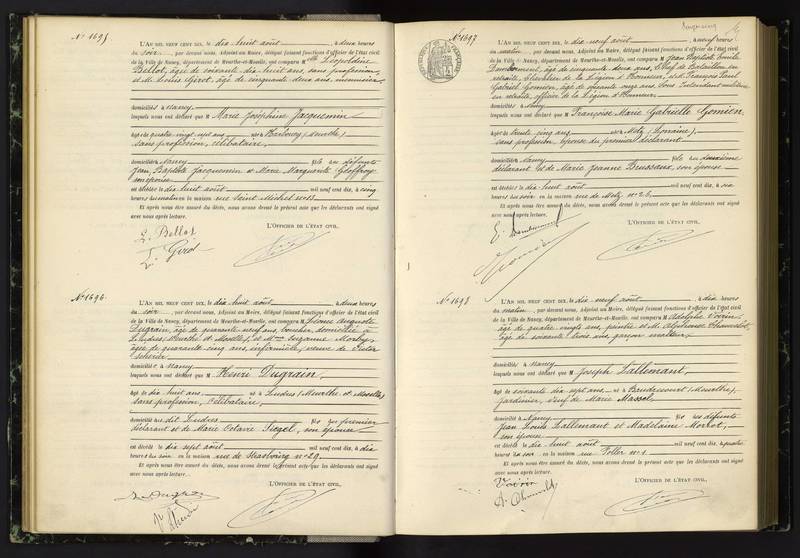 N° 1695
L'AN MIL NEUF CENT DIX, le dix-huit août, à deux heures
du soir, par devant nous, Adjoint au Maire, délégué faisant fonctions d'officier de l'état civil
de la Ville de Nancy, département de Meurthe-et-Moselle, ont comparu M lle Léopoldine
Bellot, âgé de soixante-dix-huit ans, sans profession,
et M. Louis Girot, âgé de cinquante deux ans, menuisier
domiciliés à Nancy
lesquels nous ont déclaré que M Marie Joséphine Jacquemin
âgée de quatre vingt sept ans, née à Harbouey (Meurthe)
sans profession, célibataire,
domiciliée à Nancy fille de défunts
Jean Baptiste Jacquemin et Marie Marguerite Geoffroy
son épouse
est décédée le dix-huit août mil neuf cent dix, à cinq
heures du matin en la maison rue Saint Michel n° 13
Et après nous être assuré du décès, nous avons dressé le présent acte que les déclarants ont signé
avec nous après lecture.
L'OFFICIER DE L'ÉTAT CIVIL,
L. Bellot
L. Girot
N° 1696
L'AN MIL NEUF CENT DIX, le dix-huit août, à deux heures
du soir, par devant nous, Adjoint au Maire, délégué faisant fonctions d'officier de l'état civil
de la Ville de Nancy, département de Meurthe-et-Moselle, ont comparu M Auguste
Dugrain, âgé de quarante-neuf ans, boucher, domicilié à
Ludres (Meurthe et Moselle), et Mme Suzanne
âgée de quarante cinq ans, infirmière, veuve de Victor
domiciliée à Nancy
lesquels nous ont déclaré que M Henri Dugrain,
âgé de dix-huit ans né à Ludres (Meurthe et Moselle)
sans profession, célibataire,
domicilié au dit Ludres fils du premier
déclarant et de Marie Octavie Siegel, son épouse
est décédé le dix-sept août mil neuf cent dix, à dix
heures du soir en la maison rue de Strasbourg n° 29
Et après nous être assuré du décès, nous avons dressé le présent acte que les déclarants ont signé
avec nous après lecture.
L'OFFICIER DE L'ÉTAT CIVIL,
Dugrain
N° 1697
L'AN MIL NEUF CENT DIX, le dix-neuf août, à neuf heures
du matin, par devant nous, Adjoint au Maire, délégué faisant fonctions d'officier de l'état civil
de la Ville de Nancy, département de Meurthe-et-Moselle, ont comparu M Jean Baptiste Emile
âgé de cinquante deux ans, Chef de Bataillon en
retraite, Chevalier de la Légion d'Honneur, et M. François Paul
Gabriel Gomien, âgé de soixante onze ans, Sous Intendant militaire
en retraite, officier de la Légion d'Honneur
domiciliés à Nancy
lesquels nous ont déclaré que M Françoise Marie Gabrielle Gomien,
âgée de trente cinq ans née à Metz (Lorraine)
sans profession, épouse du premier déclarant
domiciliée à Nancy fille du deuxième
déclarant et de Marie Jeanne Brussaux, son épouse
est décédée le dix-huit août mil neuf cent dix, à six
heures du soir en la maison rue de Metz n° 26
Et après nous être assuré du décès, nous avons dressé le présent acte que les déclarants ont signé
avec nous après lecture.
L'OFFICIER DE L'ÉTAT CIVIL,
Gomien
N° 1698
L'AN MIL NEUF CENT DIX, le dix-neuf août, à neuf heures
du matin, par devant nous, Adjoint au Maire, délégué faisant fonctions d'officier de l'état civil
de la Ville de Nancy, département de Meurthe-et-Moselle, ont comparu M Adolphe Voirin
âgé de quatre vingts ans, peintre et M. Alphonse
âgé de soixante trois ans garçon
domiciliés à Nancy
lesquels nous ont déclaré que M Joseph Lallemant,
âgé de soixante dix sept ans né à Baudrecourt (Meurthe),
jardinier, veuf de Marie Massol
domicilié à Nancy fils de défunts
Jean Louis Lallemant et Madelaine Morlot,
son épouse
est décédé le dix-huit août mil neuf cent dix, à quatre
heures du soir en la maison rue Foller n° 1
Et après nous être assuré du décès, nous avons dressé le présent acte que les déclarants ont signé
avec nous après lecture.
L'OFFICIER DE L'ÉTAT CIVIL,
Voirin